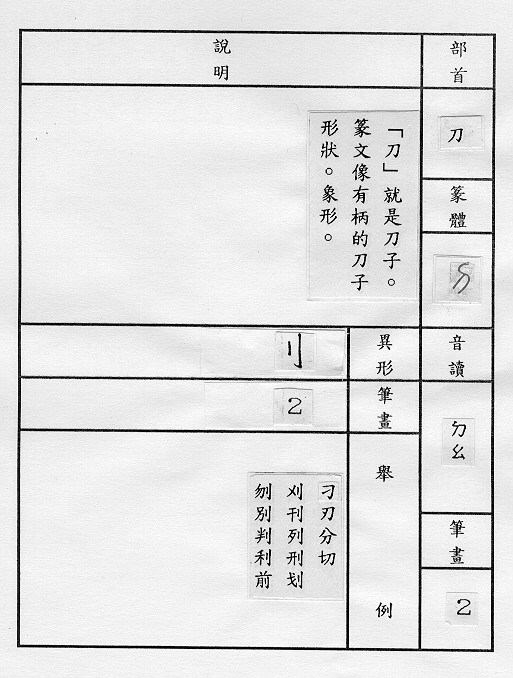 部首
刀
篆體
音讀
ㄉㄠ
筆畫
2
說明
「刀」就是刀子。
篆文像有柄的刀子
形狀。象形。
異形
刂
筆畫
2
舉例
刁刃分切
刈刊列刑划
刎別判利前